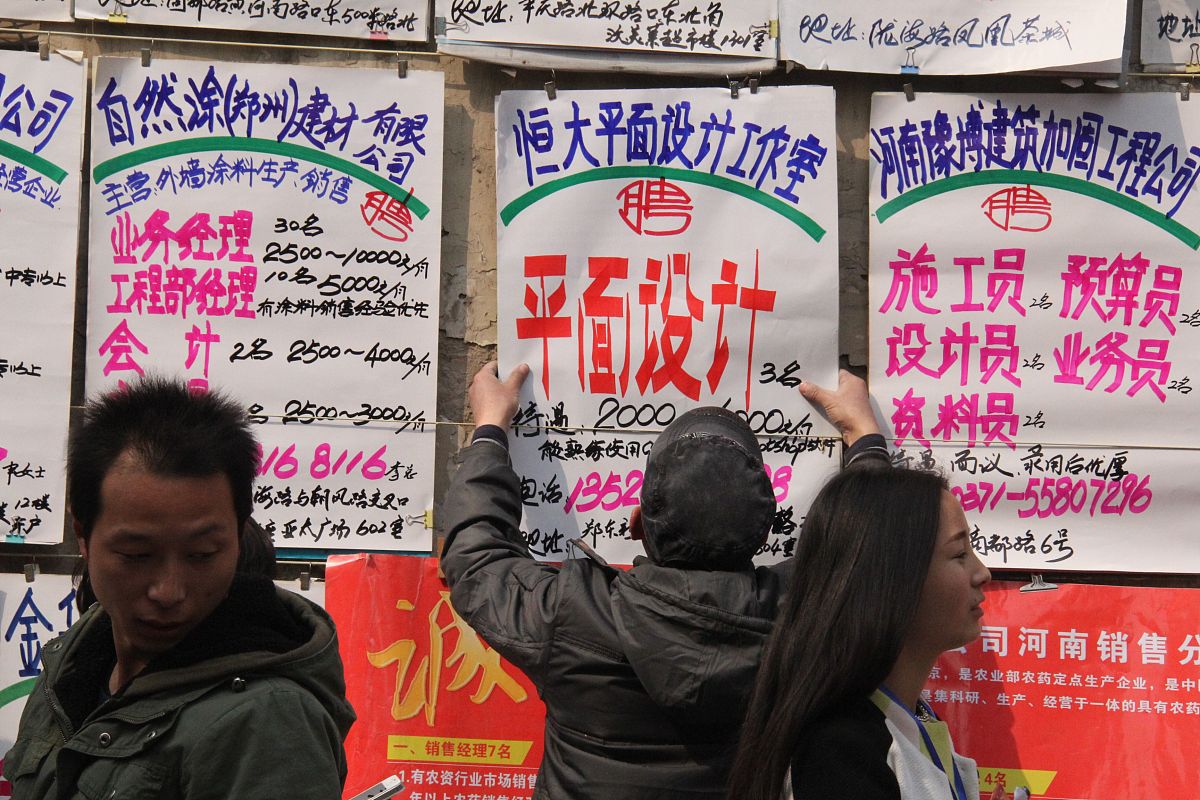 河南路口东500米路北
地址:
东北角
地址:陇海路凤凰茶城
公司
营企业
中专以上
专以上
女士
12楼
东户
自然涂(郑州)建材有限公司
主营:外墙涂料生产、销售
聘
业务经理 30名
2500~10000元/月
工程部经理 10名 5000元/月
有涂料销售经验优先
会 计 2名 2500~4000元/月
名 2500~3000元/月
168116
海路与朝凤路交叉口
亚太广场602室
恒大平面设计工作室
聘
平面设计
3名
待遇 2000
000元/月
能熟练使用
软件
电话:1352
8
地址: 郑东
04室
河南豫博建筑加固工程公司
聘
施工员 2名 预算员 2名
设计员 2名 业务员 2名
资料员 2名
待遇 面议、录用后优厚
0371-55807296
南都路6号
金
诚
一、销售经理7名
1.有农资行业市场销售
年以上农药销售经
司河南销售分
京,是农业部农药定点生产企业,是中
是集科研、生产、经营于一体的具有农药
4名